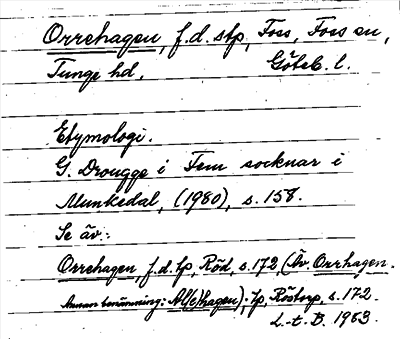 Orrehagen, f.d. stp, Foss, Foss sn,
Tunge hd. Göteb. l.
Etymologi.
G. Drougge i Fem socknar i
Munkedal, (1980), s. 158.
Se äv.:
Orrehagen, f.d. lp, Röd, s. 172, (Äv. Orrhagen.
Annan benämning: Al(e)hagen). lp, Röstorp, s. 172.
L.-t. B. 1983.